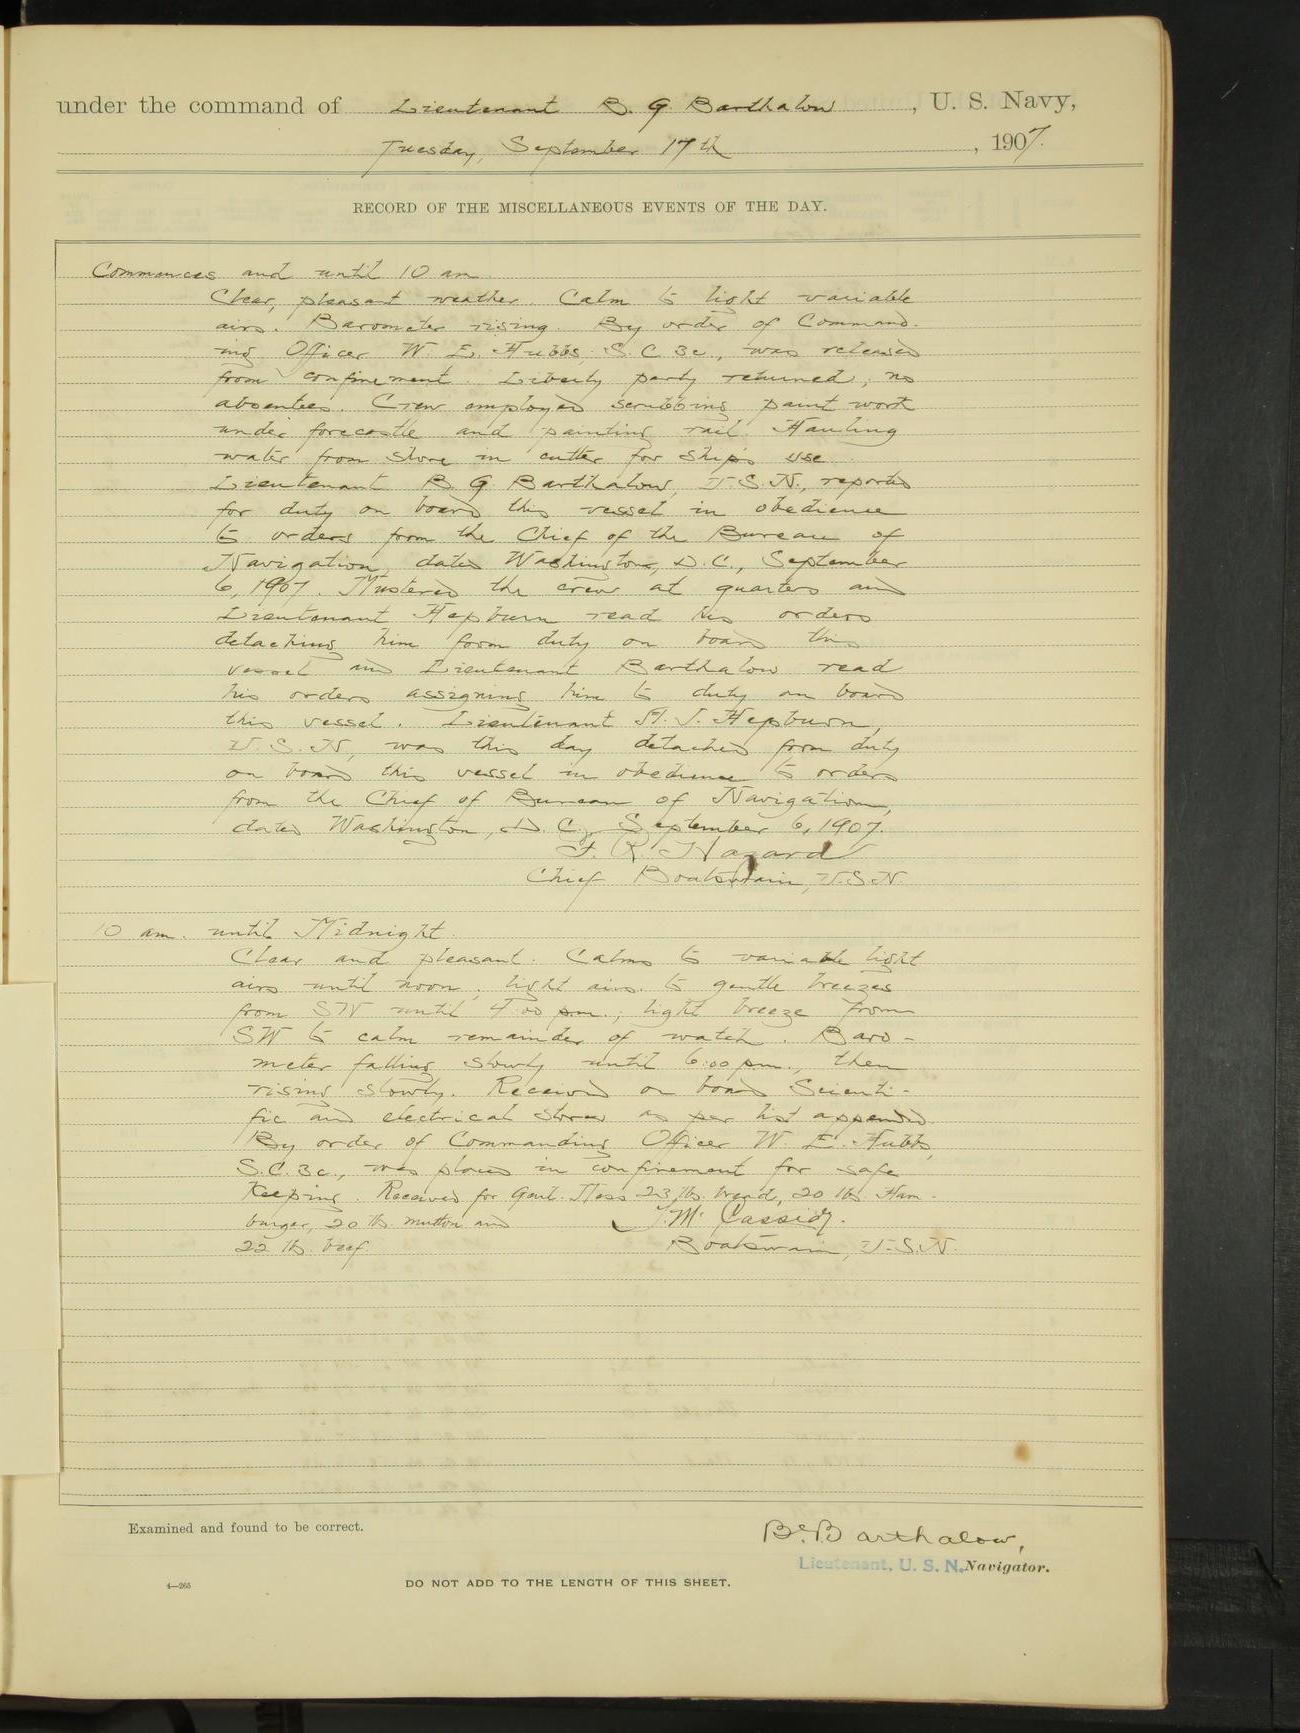 under the command of Lieutenant B. G Barthalow, U. S. Navy,
Tuesday, September 17th, 1907.
RECORD OF THE MISCELLANEOUS EVENTS OF THE DAY.
Commences and until 10 am
Clear, pleasant weather. Calm to light variable
airs. Barometer rising. By order of Command-
ing Officer W. E. Hubbs, S. C. 3c., was released
from confinement. Liberty party returned, no
absentees. Crew employed scrubbing paint work
under forecastle and painting rail. Hauling
water from shore in cutter for ship's use
Lieutenant B. G. Barthalow, U.S.N., reported
for duty on board this vessel in obedience
to orders from the Chief of the Bureau of
Navigation, dated Washington, D.C., September
6, 1907. Mustered the crew at quarters and
Lieutenant Hepburn read his orders
detaching him form duty on board this
vessel and Lieutenant Barthalow read
his orders assigning him to duty on board
this vessel. Lieutenant A. J. Hepburn,
U.S.N, was this day detached form duty
on board this vessel in obedience to orders
from the Chief of Bureau of Navigation,
dated Washington, D.C., September 6, 1907.
F. R. Hazard
Chief Boatswain, U.S.N.
10 am. until Midnight.
Clear and pleasant. Calms to variable light
airs until noon; light airs to gentle breezes
from SW until 4:00 pm.; light breeze from
SW to calm remainder of watch. Baro-
meter falling slowly until 6:00 pm., then
rising slowly. Received on board Scienti-
fic and electrical stores as per list appended
By order of Commanding Officer W. E. Hubbs,
S.C. 3c., was placed in confinement for safe
keeping. Received for Genl. Mess 23 lbs. bread, 20 lbs. Ham-
burger, 20 lb. mutton and
22 lb. beef.
J. Mc Cassidy.
Boatswain, U.S.N.
Examined and found to be correct.
B. Barthalow,
Lieutenant, U. S. N. Navigator.
4—265
DO NOT ADD TO THE LENGTH OF THIS SHEET.